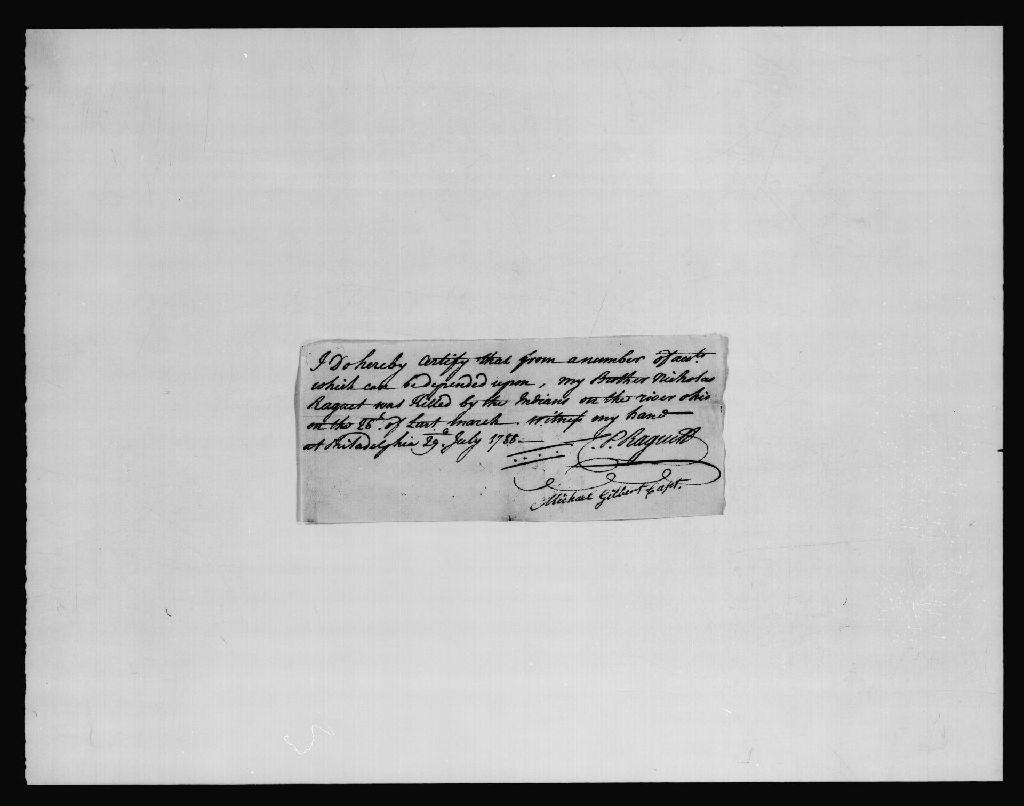 I Do hereby Certify that from a number of acctˢ
which can be depended upon, my Brother Nicholas
Raguet was Killed by the Indians on the river ohio
on the 26ᵈ. of Last march. witness my hand
at Philadelphia 29ᵈ. July 1788
J. P. Raguet
Michael Gilbert Capt.